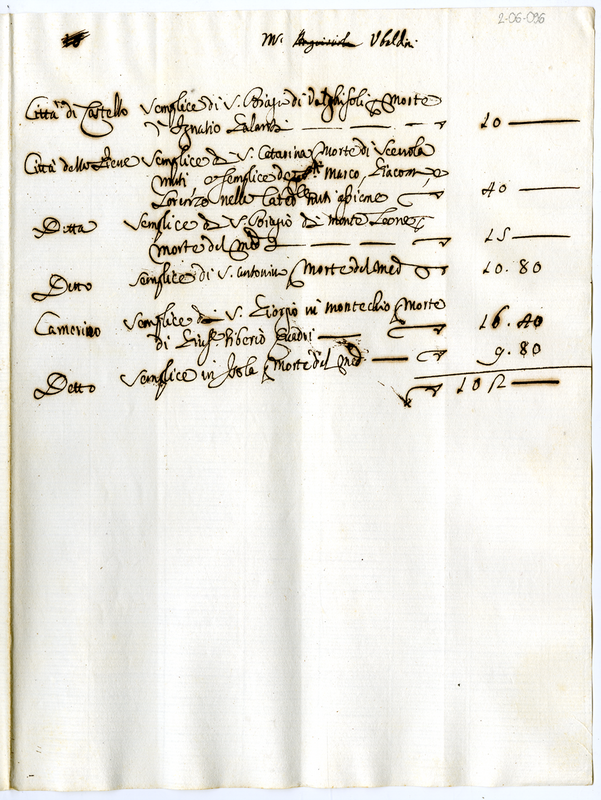 2-06-096
Mr. Ubaldi
Città di Castello Semplice di S. Biagio di Valghisoli p Morte
d'Ignatio 10
Città della Pieve Semplice di S. Caterina p Morte di Scevola
Muti e semplice de SSti Marco, Giacomo, e
Lorenzo nella Catedle uniti assieme 40
Ditta Semplice di S. Biagio di Monte Leone p
morte del med 15
Detto Semplice di S. Antonino p Morte del Med 10. 80
Camerino Semplice di S. Giorgio in Montechio p Morte
di Giuse Liberio 16. 40
Detto Semplice in Isola p Morte del Med 9. 80
102